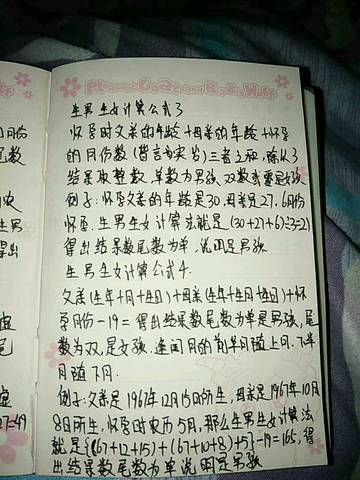 Pleasant Goat and Big Big Wolf
生男生女计算公式3
怀孕时父亲的年龄+母亲的年龄+怀孕
的月份数(皆言为宋岁)三者之和,除以3
结果取整数,单数为男孩,双数或零是女孩
例子:怀孕父亲的年龄是30,母亲是27,6月份
怀孕.生男生女计算法就是(30+27+6)÷3=21
得出结果数尾数为单,说明是男孩
生男生女计算公式4.
父亲(生年+月+生日)+母亲(生年+生月+生日)+怀
孕月份-19=得出结果数尾数为单是男孩,尾
数为双,是女孩.逢闰月的前半月随上月.下半
月随下月.
例子:父亲是1967年12月15日所生,母亲是1967年10月
8日所生,怀孕时农历5月,那么生男生女计算法
就是{(67+12+15)+(67+10+8)+5}-19=165,得
出结果数尾数为单说明是男孩
月份
尾数
生男
得出
尾
27=49